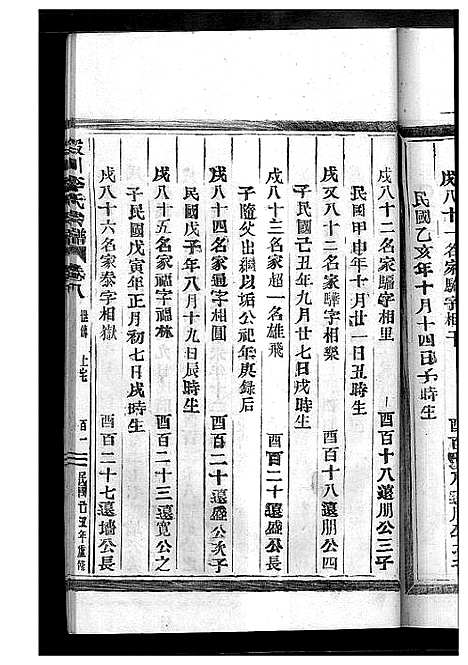 戌八十一名家
民國乙亥年十月十四日子時生
戌八十二名家驕字相里 酉百十八遠朋公三子
民國甲申年十月廿一日丑時生
戌又八十二名家驊字相樂 酉百十八遠朋公四
子民國己丑年九月廿七日戌時生
戌八十三名家超一名雄飛 酉百二十遠盛公長
子隨父出繼以垢公祀年庚錄后
戌八十四名家週字相圓 酉百二十遠盛公次子
民國戊子年八月十九日辰時生
戌八十五名家福字福林 酉百二十三遠寬公之
子民國戊寅年正月初七日戌時生
戌八十六名家泰字相嶽 酉百二十七遠墻公長
川李氏宗譜 卷八 世傳 上宅 百一 民國己丑年重修